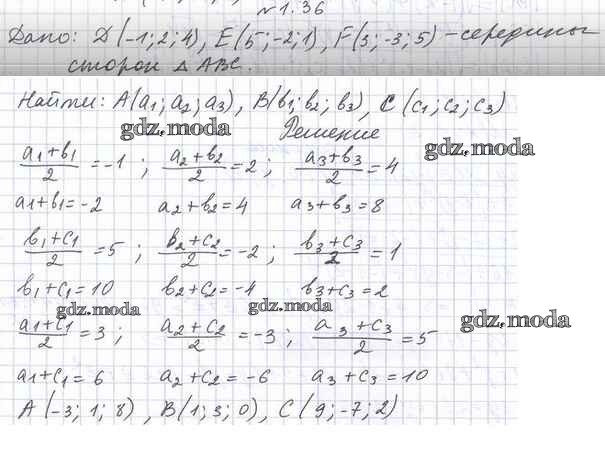 №1.36
Дано: D(-1; 2; 4), E(5; -2; 1), F(3; -3; 5) - середины
сторон △ ABC.
Найти: A(a1; a2; a3), B(b1; b2; b3), C (c1; c2; c3)
gdz.moda
Решение
gdz.moda
a1+b1/2 = -1 ; a2+b2/2 = 2 ; a3+b3/2 = 4
a1+b1=-2 a2+b2=4 a3+b3=8
b1+c1/2 = 5 ; b2+c2/2 = -2 ; b3+c3/2 = 1
b1+c1=10 b2+c2=-4 b3+c3=2
gdz.moda
gdz.moda
gdz.moda
a1+c1/2 = 3 ; a2+c2/2 = -3 ; a3+c3/2 = 5
a1+c1=6 a2+c2=-6 a3+c3=10
A(-3; 1; 8), B(1; 3; 0), C(9; -7; 2)